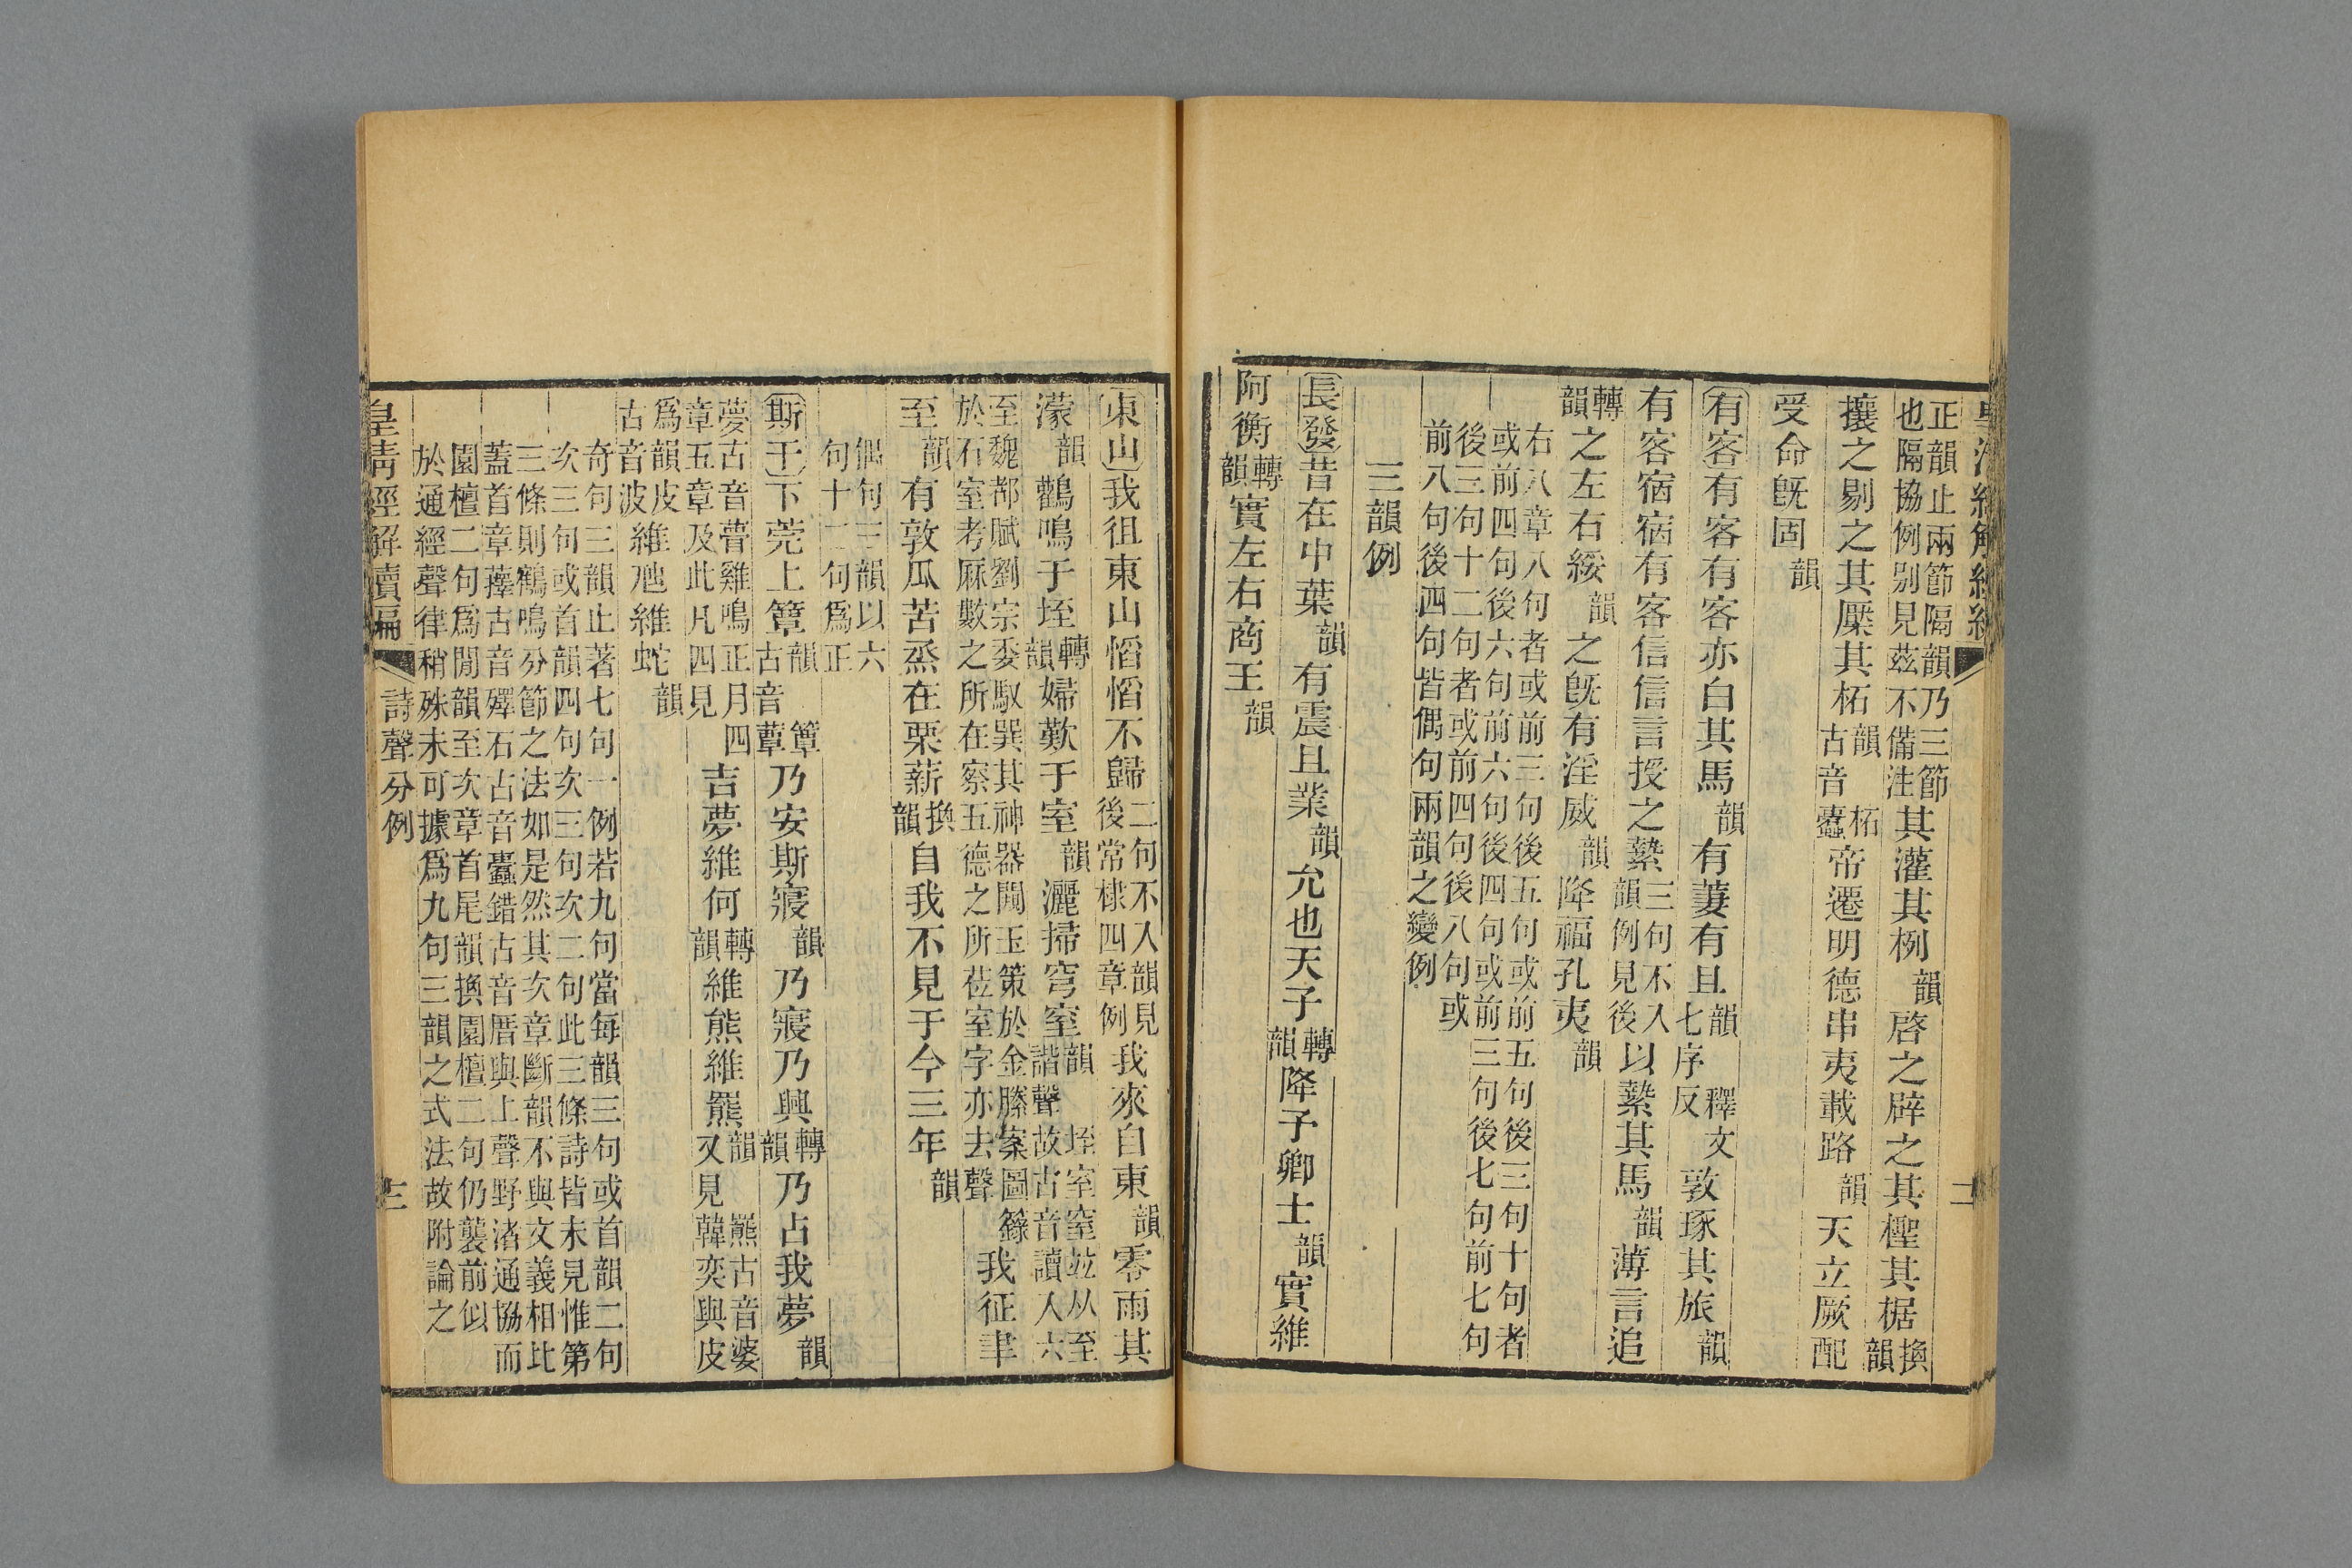 正韻止兩節隔韻乃三節
也隔協例別見茲不備注
其灌其栵韻啓之辟之其檉其椐換韻
攘之剔之其檿其柘韻古音柘蠹帝遷明德串夷載路韻天立厥配
受命旣固韻
有客有客有客亦白其馬韻有萋有且韻七序反釋文敦琢其旅韻
有客宿宿有客信信言授之縶三句不入韻例見後以縶其馬韻薄言追
轉韻之左右綏韻之旣有淫威韻降福孔夷韻
右八章八句者或前三句後五句或前五句後三句十句者
或前四句後六句前六句後四句或前三句後七句前七句
後三句十二句者或前四句後八句或
前八句後四句皆偶句兩韻之變例
三韻例
長發昔在中葉韻有震且業韻允也天子轉韻降予卿士韻實維
阿衡轉韻實左右商王韻
東山我徂東山慆慆不歸二句不入韻見後常棣四章例我來自東韻零雨其
濛韻鸛鳴于垤轉韻婦歎于室韻灑掃穹窒韻諧聲垤室窒竝从至故古音讀入六
至魏都賦劉宗委馭巽其神器闚玉策於金縢案圖籙
於石室考厤數之所在察五德之所莅室字亦去聲
我征聿
至韻有敦瓜苦烝在栗薪換韻自我不見于今三年韻
偶句三韻以六
句十二句爲正
斯干下莞上簟韻古音簟蕈乃安斯寢韻乃寢乃興轉韻乃占我夢韻
夢古音瞢雞鳴正月四
章五章及此凡四見
吉夢維何轉韻維熊維羆韻又見羆古音婆韓奕與皮
爲韻皮古音波維虺維蛇韻
奇句三韻止著七句一例若九句當每韻三句或首韻二句
次三句或首韻四句次三句次二句此三條詩皆未見惟第
三條則鶴鳴分節之法如是然其次章斷韻不與文義相比
蓋首章蘀古音殬石古音蠹錯古音厝與上聲野渚通協而
園檀二句爲閒韻至次章首尾韻換園檀二句仍襲前似
於通經聲律稍殊未可據爲九句三韻之式法故附論之
皇淸經解續編 詩聲分例 三